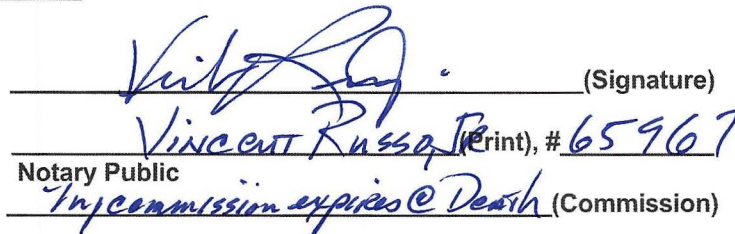 (Signature)
Vincent Russo, JR (Print), # 65967
Notary Public
My commission expires @ Death (Commission)